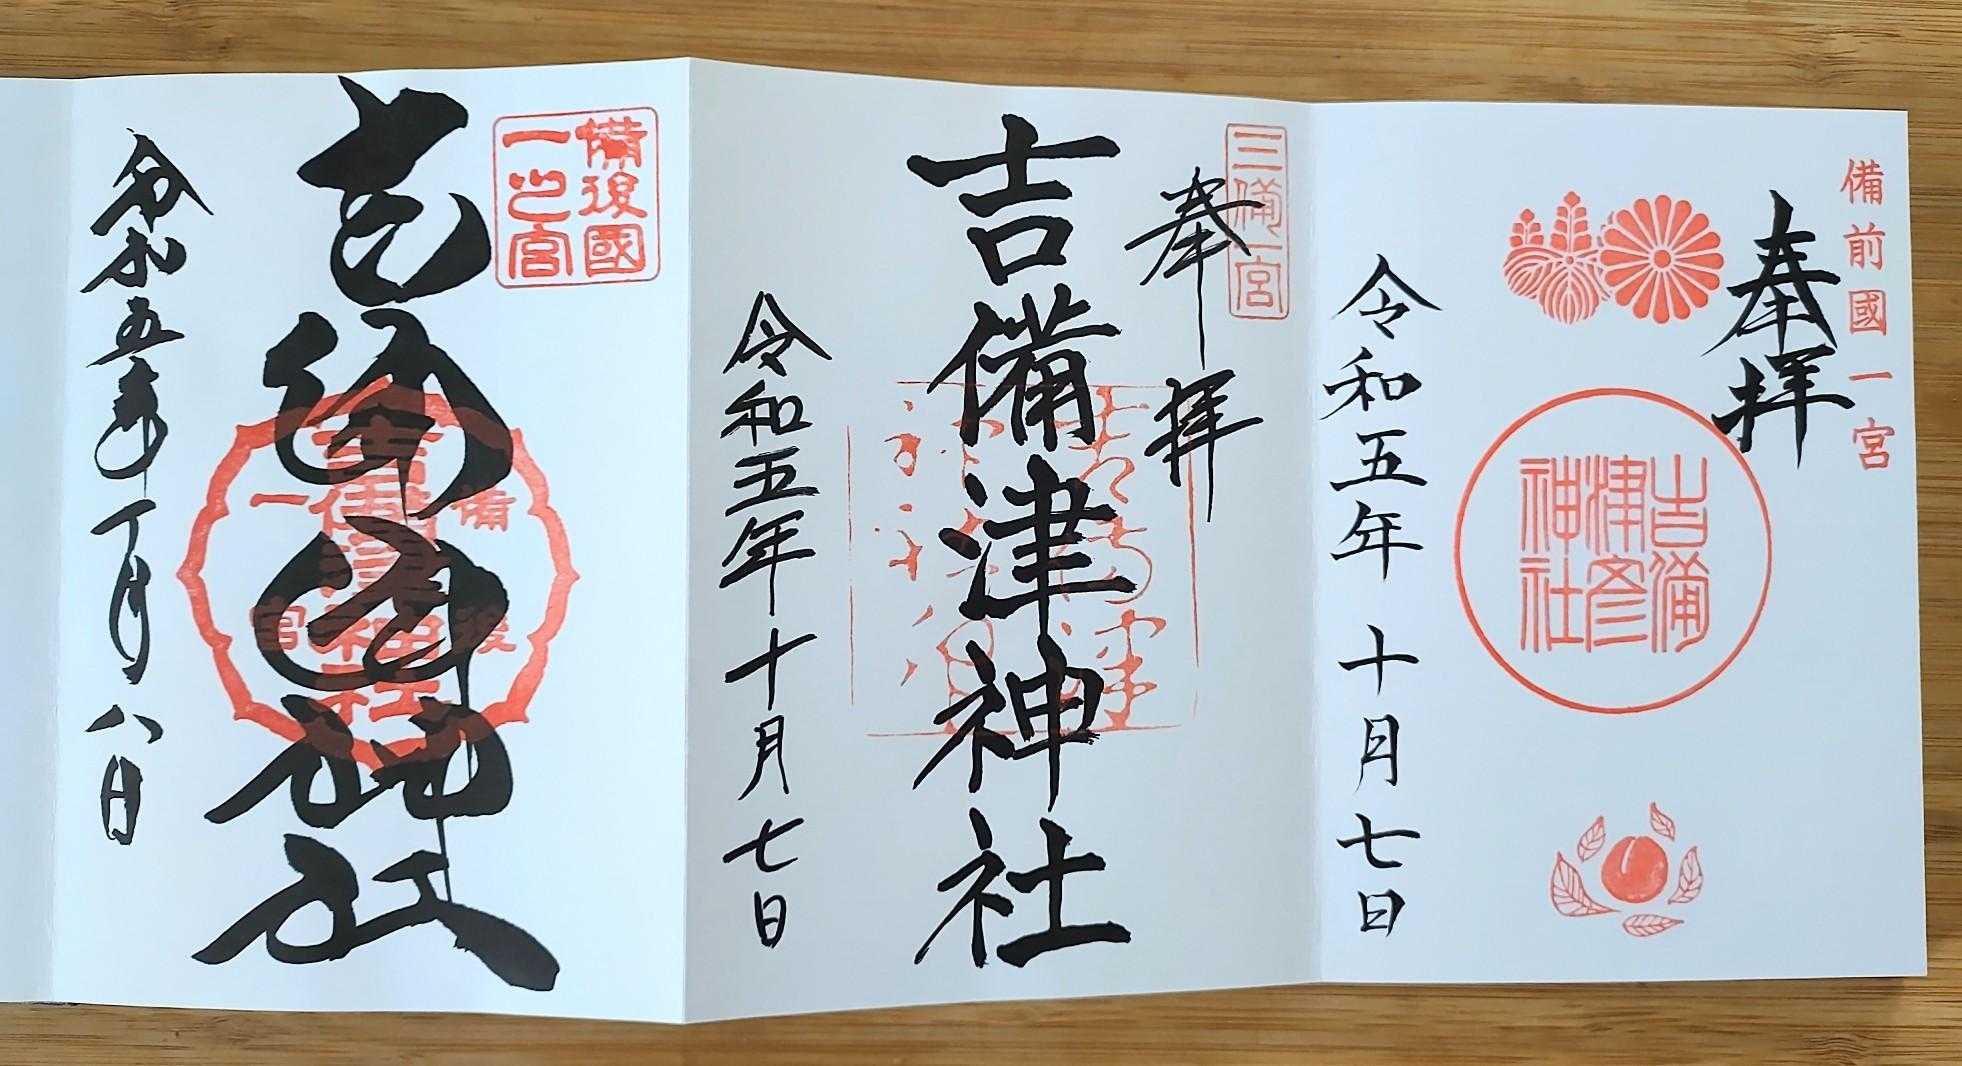 備前國一宮
奉拝
吉備
津彦
神社
令和五年 十月七日
三備一宮
奉拝
吉備津神社
令和五年十月七日
備後國
一之宮
吉備津神社
備後
一宮
吉備津神社
令和五年十月八日